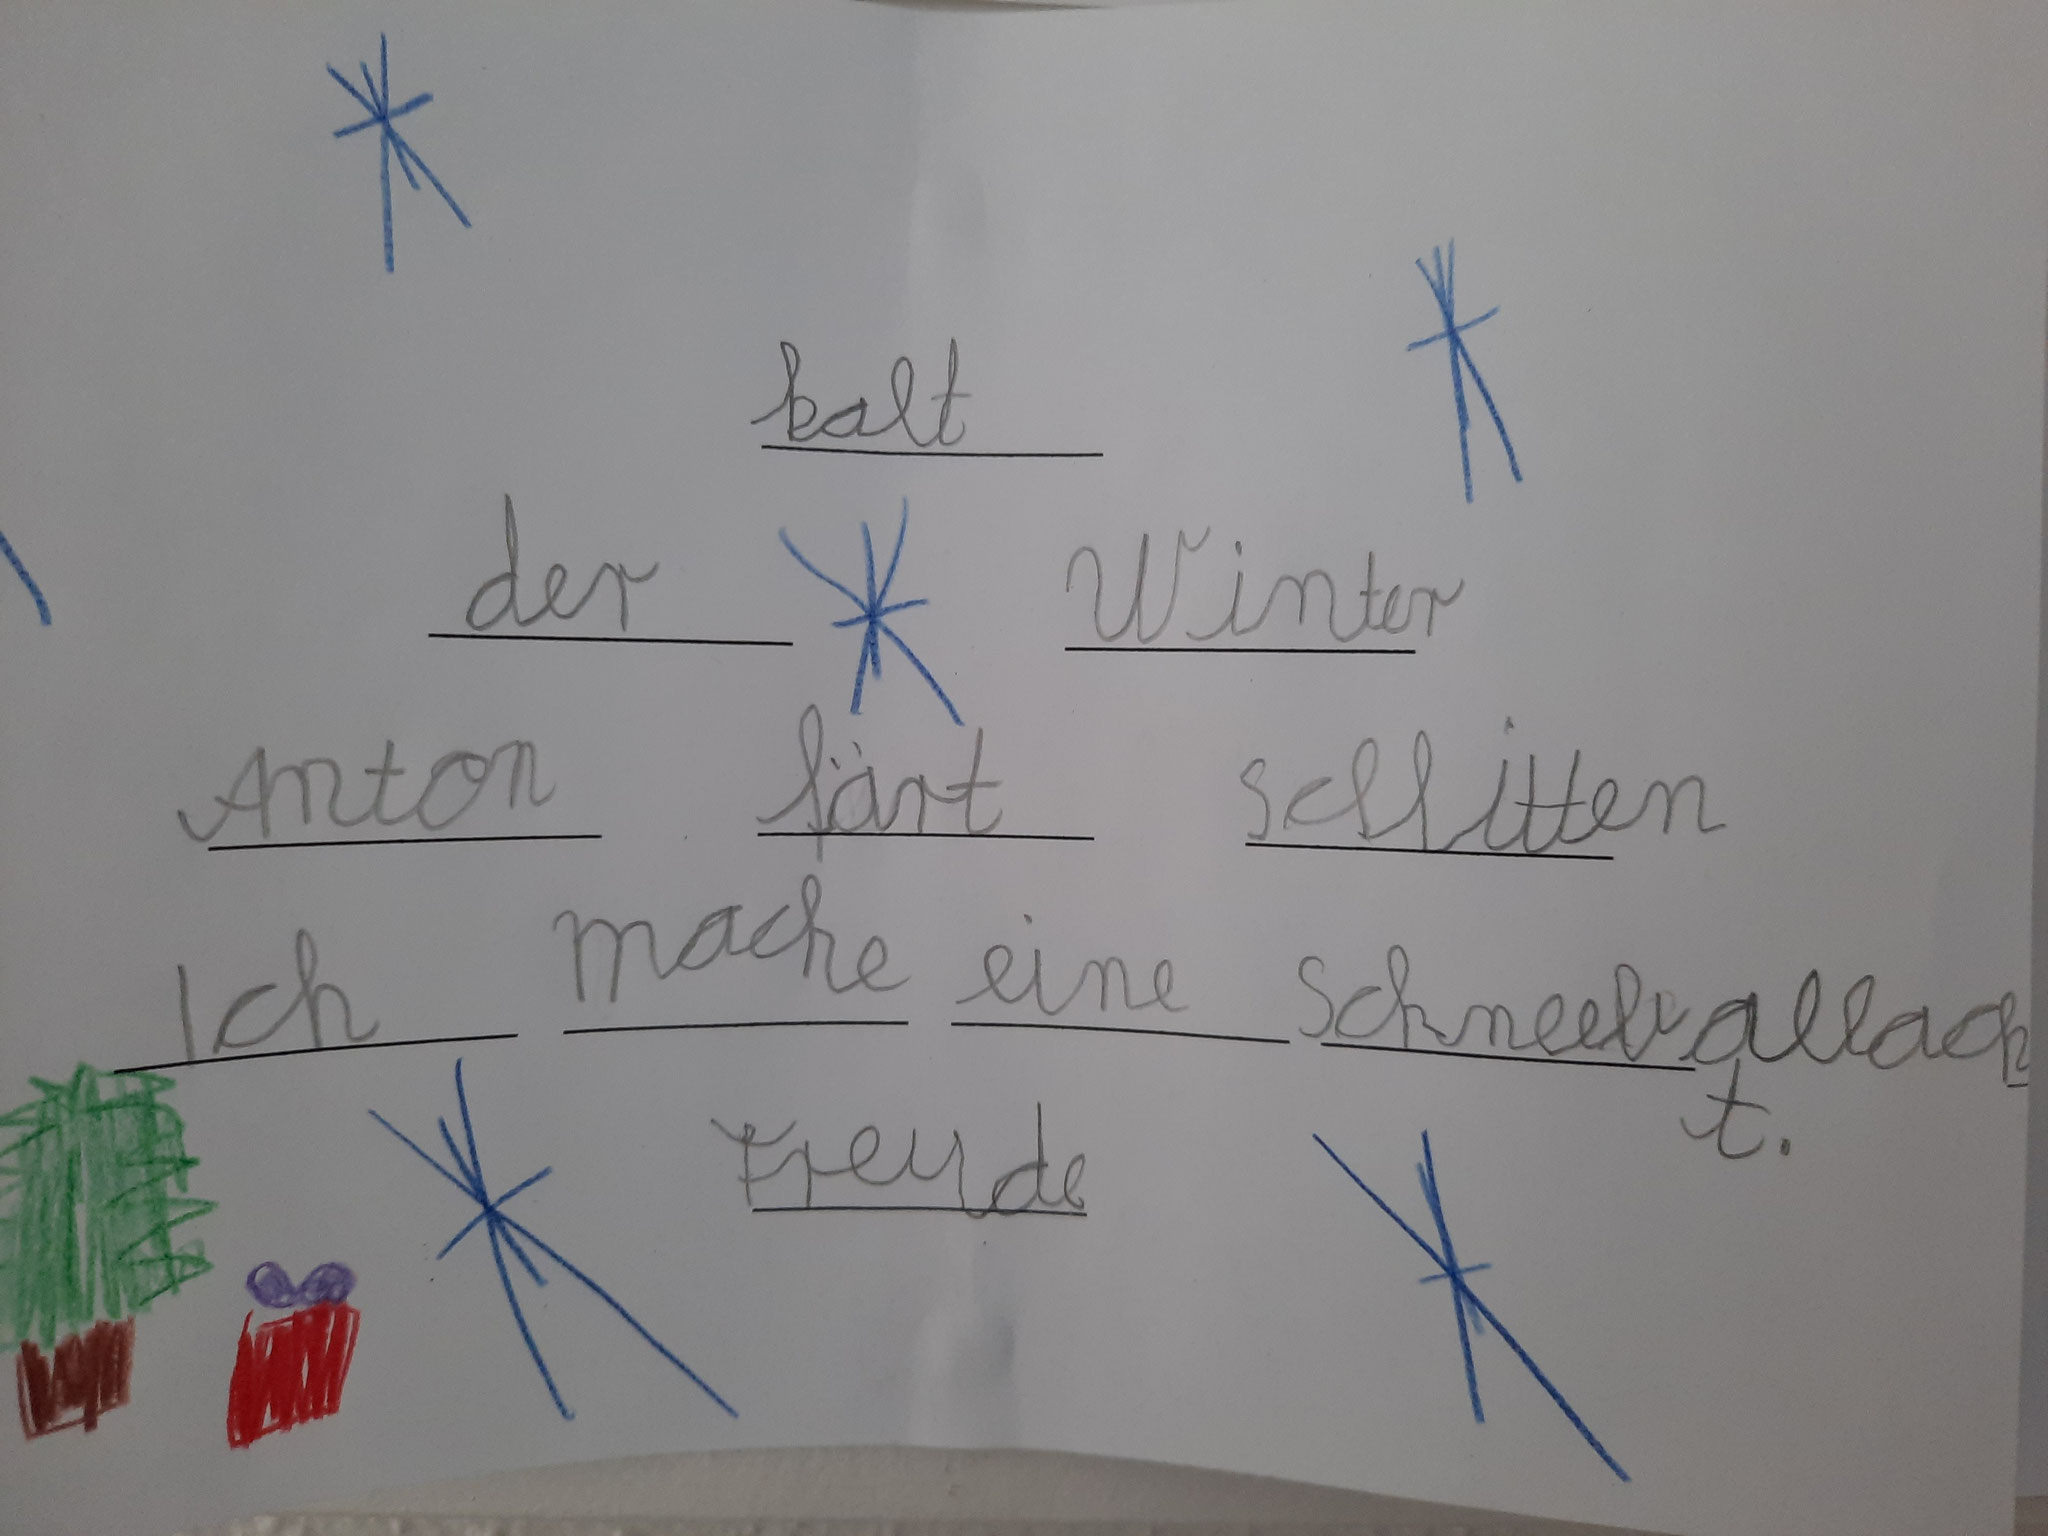 kalt
der Winter
Anton färt schlitten
Ich mache eine Schneeballach
t.
Freude